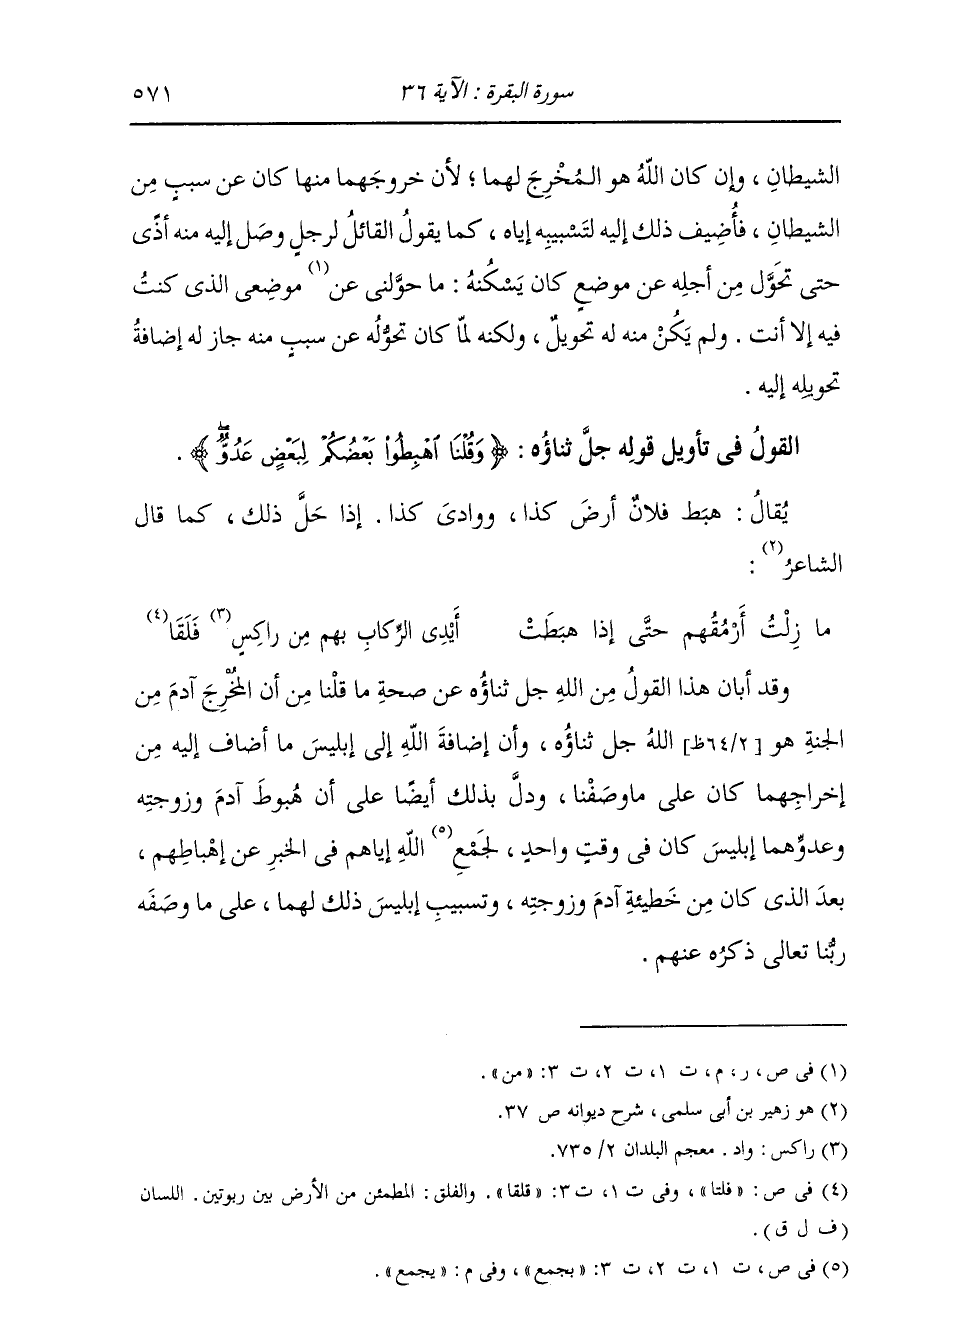 سورة البقرة : الآية ٣٦ ٥٧١
الشيطانِ ، وإن كان اللّهُ هو المُخْرِجَ لهما ؛ لأن خروجَهما منها كان عن سببٍ مِن
الشيطانِ ، فأُضِيف ذلك إليه لتَسْبيبِه إياه ، كما يقولُ القائلُ لرجلٍ وصَل إليه منه أذًى
حتى تحَوَّل مِن أجلِه عن موضعٍ كان يَسْكُنهُ : ما حوَّلنى عن(١) موضِعى الذى كنتُ
فيه إلا أنت . ولم يَكُنْ منه له تحويلٌ ، ولكنه لمّا كان تحوُّلُه عن سببٍ منه جاز له إضافةُ
تحويلِه إليه .
القولُ فى تأويل قولِه جلَّ ثناؤُه : ﴿ وَقُلْنَا ٱهْبِطُوا۟ بَعْضُكُمْ لِبَعْضٍ عَدُوٌّ ۖ ﴾ .
يُقالُ : هبَط فلانٌ أرضَ كذا ، ووادىَ كذا . إذا حَلَّ ذلك ، كما قال
الشاعرُ(٢) :
ما زِلْتُ أَرْمُقُهم حتَّى إذا هبَطَتْ أَيْدِى الرِّكابِ بهم مِن راكِسٍ(٣) فَلَقَا(٤)
وقد أبان هذا القولُ مِن اللهِ جل ثناؤُه عن صحةِ ما قلْنا مِن أن المُخْرِجَ آدمَ مِن
الجنةِ هو [٦٤/٢ظ] اللهُ جل ثناؤُه ، وأن إضافةَ اللّهِ إلى إبليسَ ما أضاف إليه مِن
إخراجِهما كان على ماوصَفْنا ، ودلَّ بذلك أيضًا على أن هُبوطَ آدمَ وزوجتِه
وعدوِّهما إبليسَ كان فى وقتٍ واحدٍ ، لجَمْعِ(٥) اللّهِ إياهم فى الخبرِ عن إهْباطِهم ،
بعدَ الذى كان مِن خَطيئةِ آدمَ وزوجتِه ، وتسبيبِ إبليسَ ذلك لهما ، على ما وصَفَه
ربُّنا تعالى ذكرُه عنهم .
(١) فى ص ، ر ، م ، ت ١، ت ٢، ت ٣: «من» .
(٢) هو زهير بن أبى سلمى ، شرح ديوانه ص ٣٧.
(٣) راكس : واد . معجم البلدان ٢/ ٧٣٥.
(٤) فى ص : «فلتا» ، وفى ت ١، ت٣: «قلقا» . والفلق : المطمئن من الأرض بين ربوتين . اللسان
(ف ل ق) .
(٥) فى ص ، ت ١، ت ٢، ت ٣: «بجمع» ، وفى م : «يجمع» .